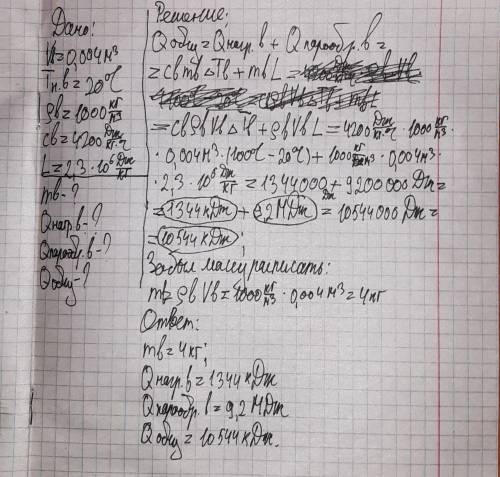 Дано:
Vв=0,004м³
Tн.в=20°C
ρв=1000 кг/м³
cв=4200 Дж/кг·°C
L=2,3·10⁶ Дж/кг
mв-?
Qнагр.в-?
Qпарообр.в-?
Qобщ-?
Решение:
Qобщ=Qнагр.в+Qпарообр.в=
=cвmвΔTв+mвL=
=cвρвVвΔT+ρвVвL=4200 Дж/кг·°C·1000 кг/м³·
·0,004м³·(100°C-20°C)+1000 кг/м³·0,004м³·
·2,3·10⁶ Дж/кг=1344000+9200000Дж=
=1344кДж+9,2МДж=10544000Дж=
=10544кДж;
Забыл массу расписать:
mв=ρвVв=1000 кг/м³·0,004м³=4кг
Ответ:
mв=4кг;
Qнагр.в=1344кДж
Qпарообр.в=9,2МДж
Qобщ=10544кДж.